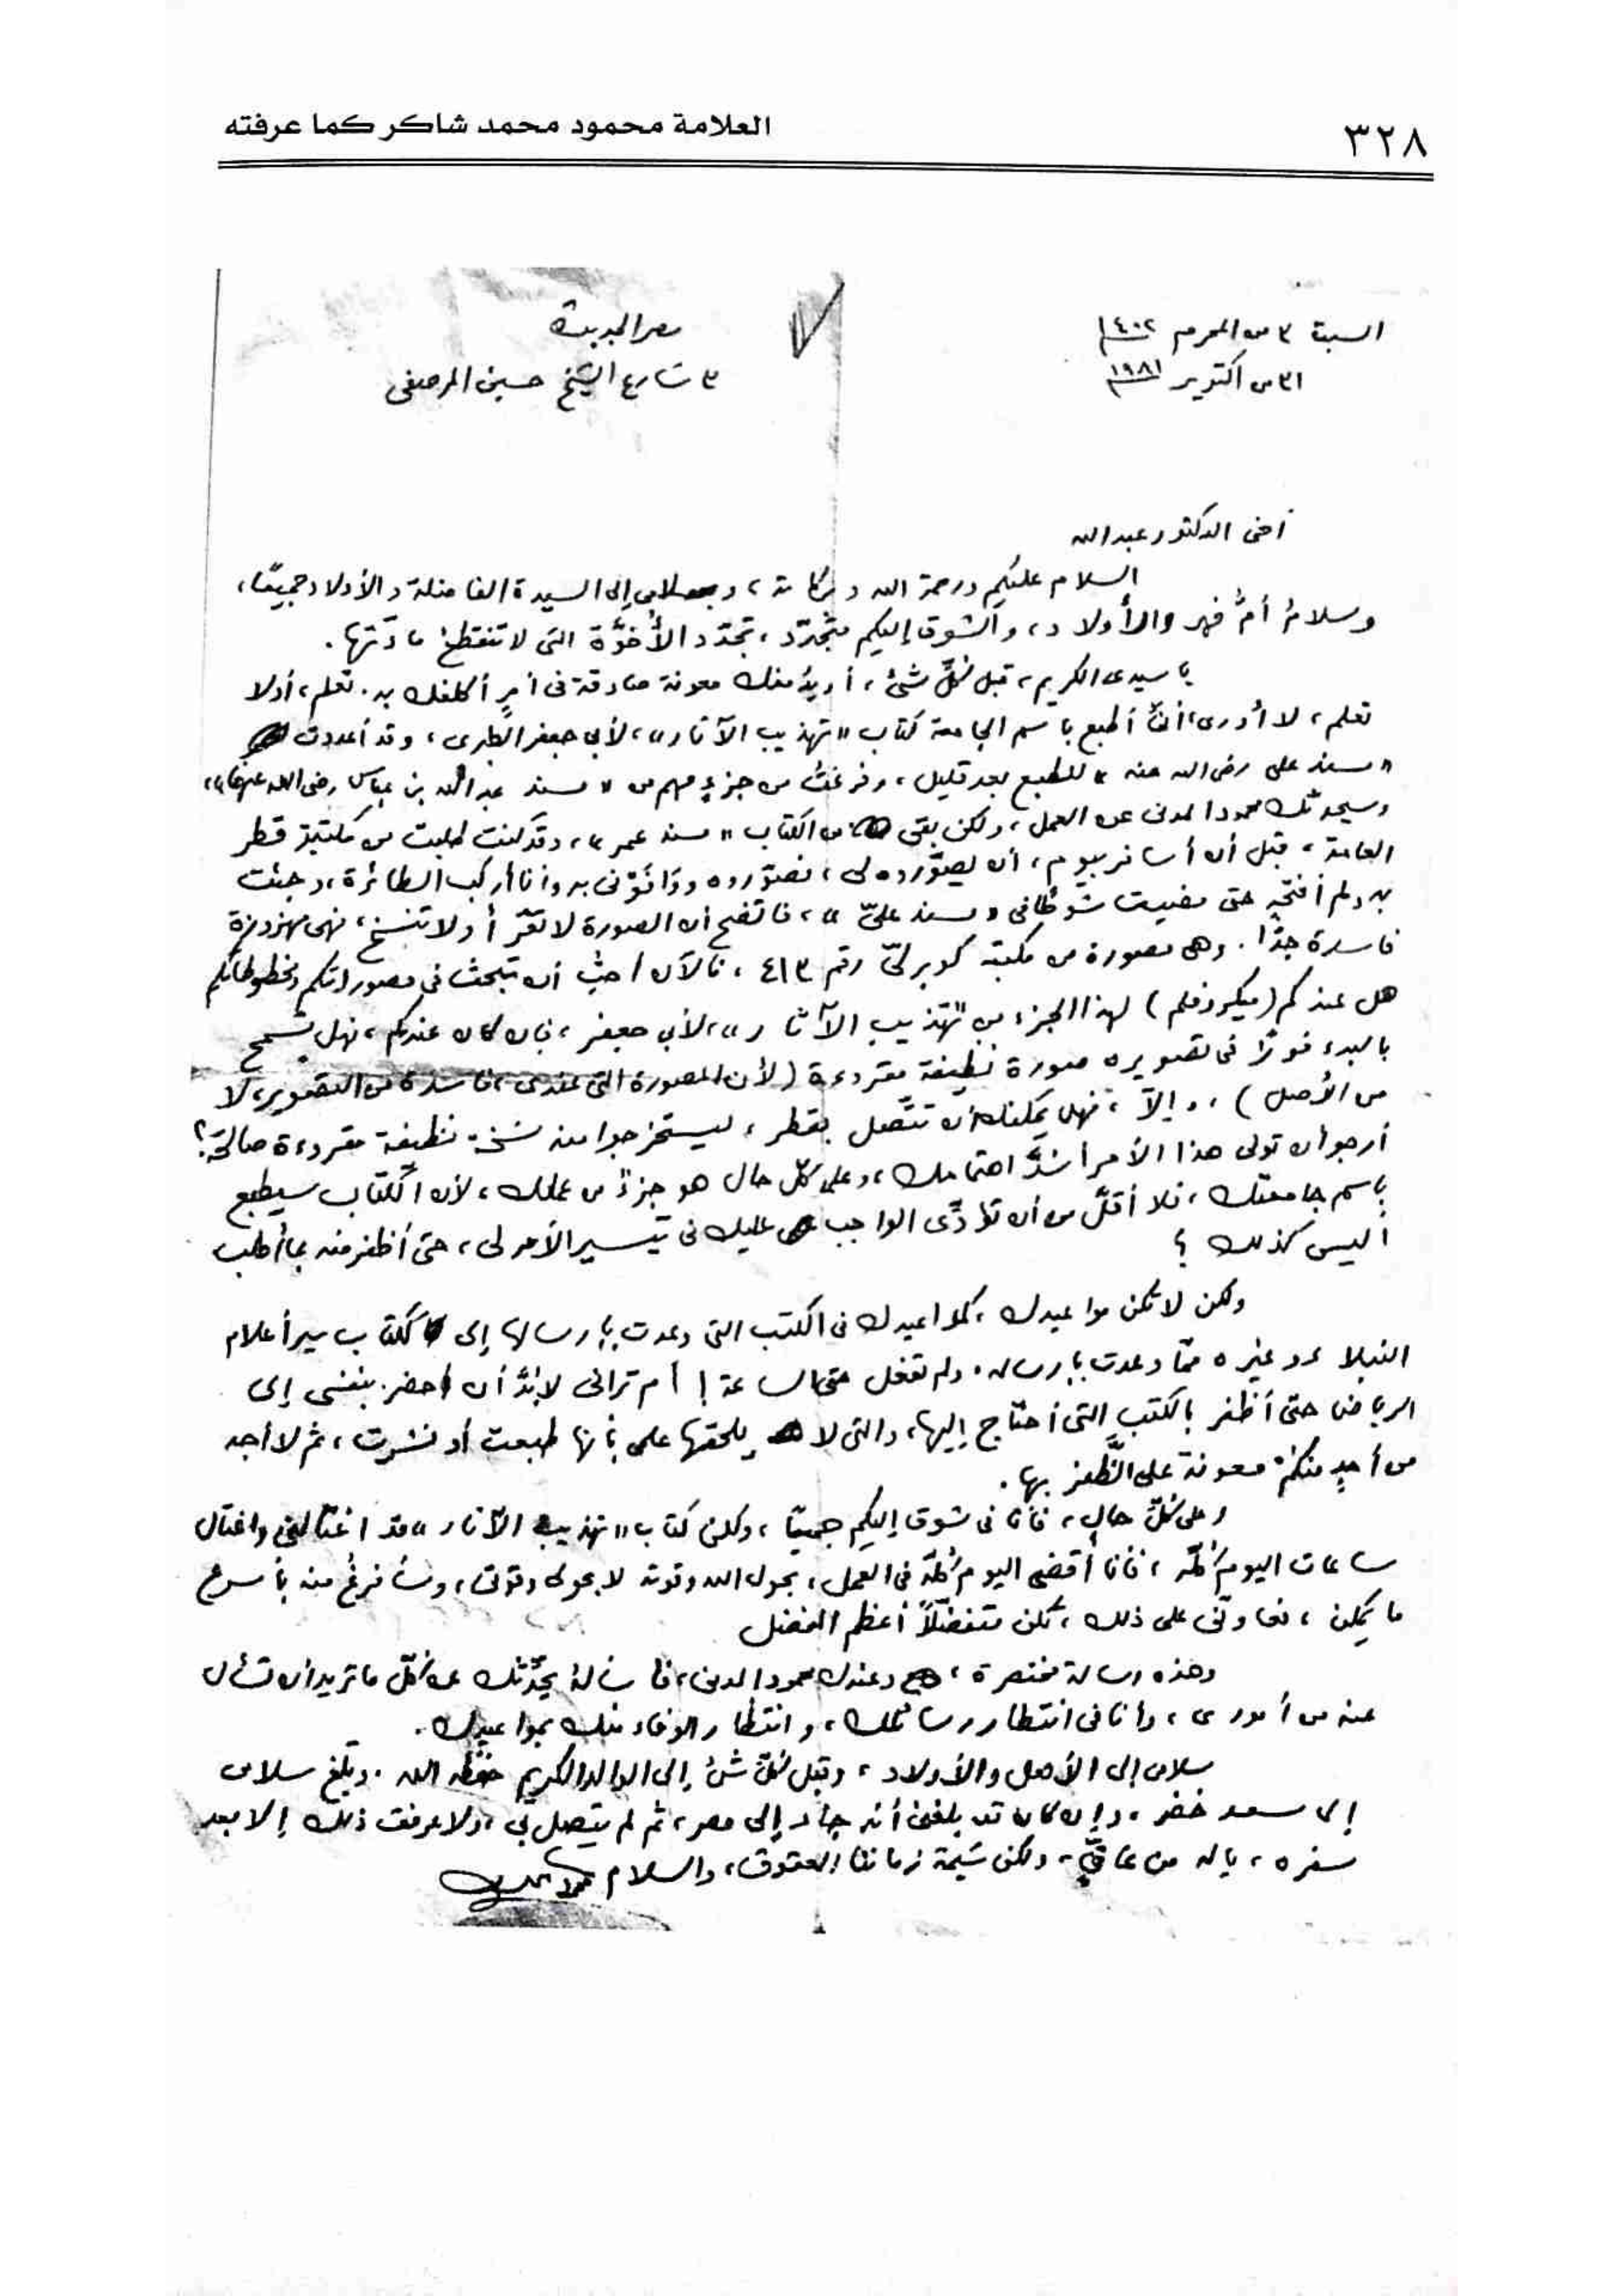 ٣٢٨
العلامة محمود محمد شاكر كما عرفته
السبت ٣ من المحرم ١٤٠٢
٣١ من أكتوبر ١٩٨١
مصر الجديدة
٣ شارع الشيخ حسين المرصفى
أخى الدكتور عبد الله
السلام عليكم ورحمة الله وبركاته، وسلامى إلى السيدة الفاضلة والأولاد جميعًا،
وسلامُ أمُّ فهر والأولاد، والشوق إليكم متجدّد، تجدّد الأُخوَّة التى لا تنقطعُ مادّتها.
يا سيدى الكريم، قبل كلِّ شئ، أريدُ منك معونة صادقة فى أمرٍ أكلفك به. تعلم، أولا
تعلم، لا أدرى، أنّى أطبع باسم الجامعة كتاب «تهذيب الآثار»، لأبى جعفر الطبرى، وقد أعددت
«مسند على رضى الله عنه» للطبع بعد قليل، وفرغتُ من جزءٍ مهم من «مسند عبد الله بن عباس رضى الله عنهما»،
وسيحدثك محمود المدنى عن العمل، ولكن بقى من الكتاب «مسند عمر»، وقد كنت طلبت من مكتبة قطر
العامة، قبل أن أسافر بيوم، أن يصوّروه لى، فصوّروه ووَافَوْنى به وأنا أركب الطائرة، وجئت
به ولم أفتحْه حتى مضيت شوطًا فى «مسند علىّ»، فاتضح أن الصورة لا تقرأ ولا تنسخ، فهى مهزوزة
فاسدة جدًّا. وهى مصورة من مكتبة كوبرلىّ رقم ٤١٣، فالآن أحبُّ أن تبحث فى مصوراتكم ومخطوطاتكم
هل عندكم (ميكروفلم) لهذا الجزء من «تهذيب الآثار»، لأبى جعفر، فإن كان عندكم، فهل تسمح
بالبدء فورًا فى تصويره صورة نظيفة مقروءة (لأن المصورة التى عندى، فاسدة من التصوير، لا
من الأصل)، وإلاّ، فهل يمكنك أن تتّصل بقطر، ليستخرجوا منه نسخة نظيفة مقروءة صالحة؟
أرجو أن تولى هذا الأمر أشدَّ اهتمامك، وعلى كلّ حال هو جزءٌ من عملك، لأن الكتاب سيطبع
باسم جامعتك، فلا أقلّ من أن تؤدّى الواجب عليك فى تيسير الأمر لى، حتى أظفر منه بما أطلب
أليس كذلك؟
ولكن لا تكن مواعيدك، كمواعيدك فى الكتب التى وعدت بإرسالها إلى ككتاب سير أعلام
النبلاء وغيره ممّا وعدت بإرساله، ولم تفعل حتى الساعة! أم ترانى لابُدَّ أن أحضر بنفسى إلى
الرياض حتى أظفر بالكتب التى أحتاج إليها، والتى لا يلحقها علمى بأنها طبعت أو نشرت، ثم لا أجد
من أحدٍ منكم معونة على الظَّفر بها.
وعلى كلّ حال، فأنا فى شوق إليكم جميعًا، ولكن كتاب «تهذيب الآثار» قد اغتالنى واغتال
ساعات اليوم كلّه، فأنا أقضى اليوم كلّه فى العمل، بحول الله وقوته لا بحولى وقوتى، وسأفرغُ منه بأسرع
ما يمكن، فعاونّى على ذلك، تكن متفضّلاً أعظم الفضل
وهذه رسالة مختصرة، وعندك محمود المدنى، فاسألهُ يحدّثك عن كلّ ما تريد أن تسأل
عنه من أمورى، وأنا فى انتظار رسائلك، وانتظار الوفاء منك بمواعيدك.
سلامى إلى الأهل والأولاد، وقبل كلّ شئ إلى الوالد الكريم حفظه الله. وبلّغ سلامى
إلى سعد خضر، وإن كان قد بلغنى أنه جاء إلى مصر، ثم لم يتصل بى، ولا عرفت ذلك إلا بعد
سفره، ياله من عاقٍّ، ولكن شيمة زماننا العقوق، والسلام